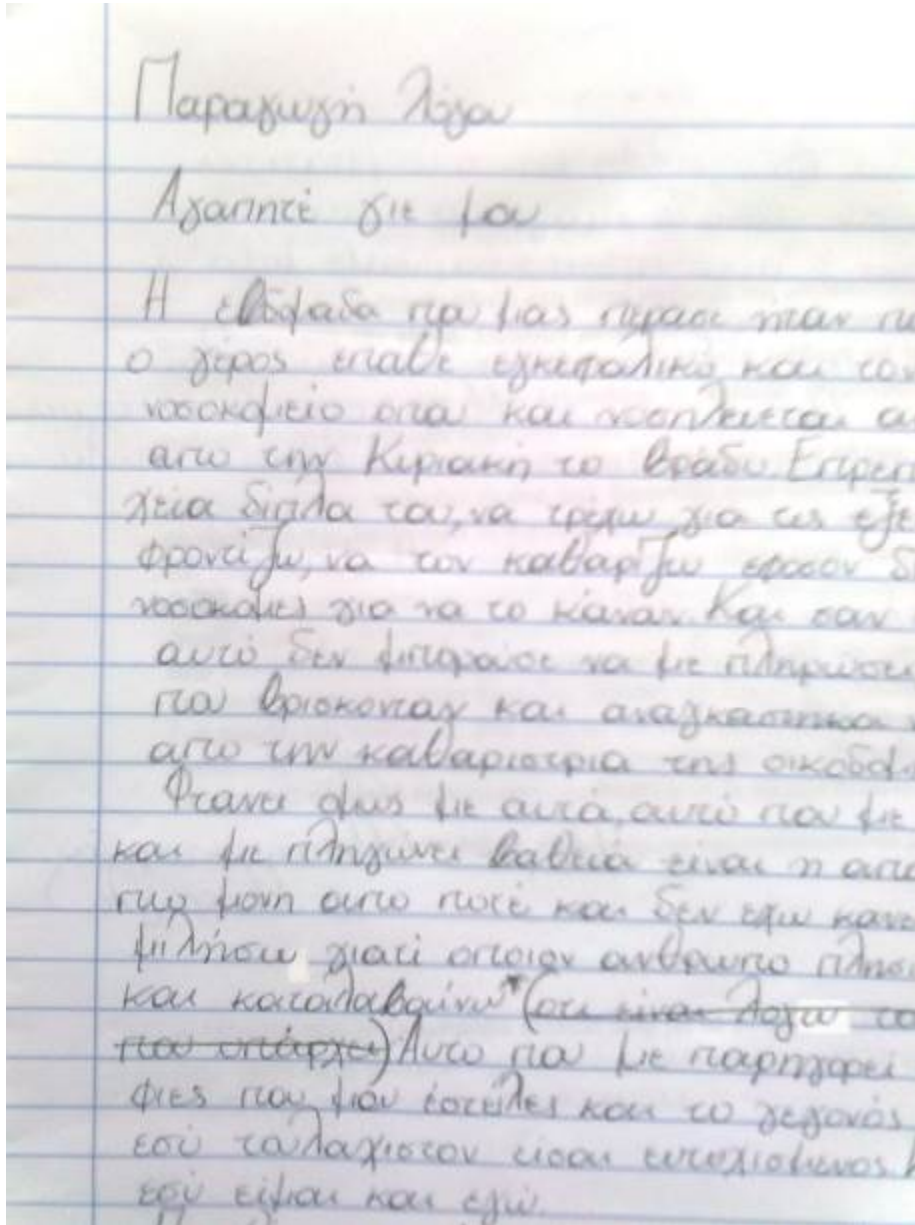 Παραγωγή λόγου
Αγαπητέ γιε μου
Η εβδομαδα που μας περασε ηταν
ο γέρος επαθε εγκεφαλικό και τον
νοσοκομείο οπου και νοσηλευεται
απο την Κυριακη το βράδυ Επρεπε
δίπλα του, να τρέχω για τις εξε
φροντίζω, να τον καθαρίζω εφοσον
νοσοκόμες για να το κάνουν Και σαν
αυτό δεν μπορούσε να με πληρωσει
που βρισκοταν και αναγκαστηκα
απο την καθαριστρια της οικοδομ
Φτανει ομως με αυτά, αυτό που με
και με πληγώνει βαθειά είναι η απο
πιο μονη απο ποτέ και δεν εχω κανε
μιλήσω γιατί οποιον ανθρωπο πλησι
και καταλαβαίνω* (οτι είναι λογω το
που υπάρχει) Αυτο που με παρηγορεί
φιες που μου έστειλες και το γεγονός
εσύ τουλαχιστον εισαι ευτυχισμενος
εσύ είμαι και εγώ.